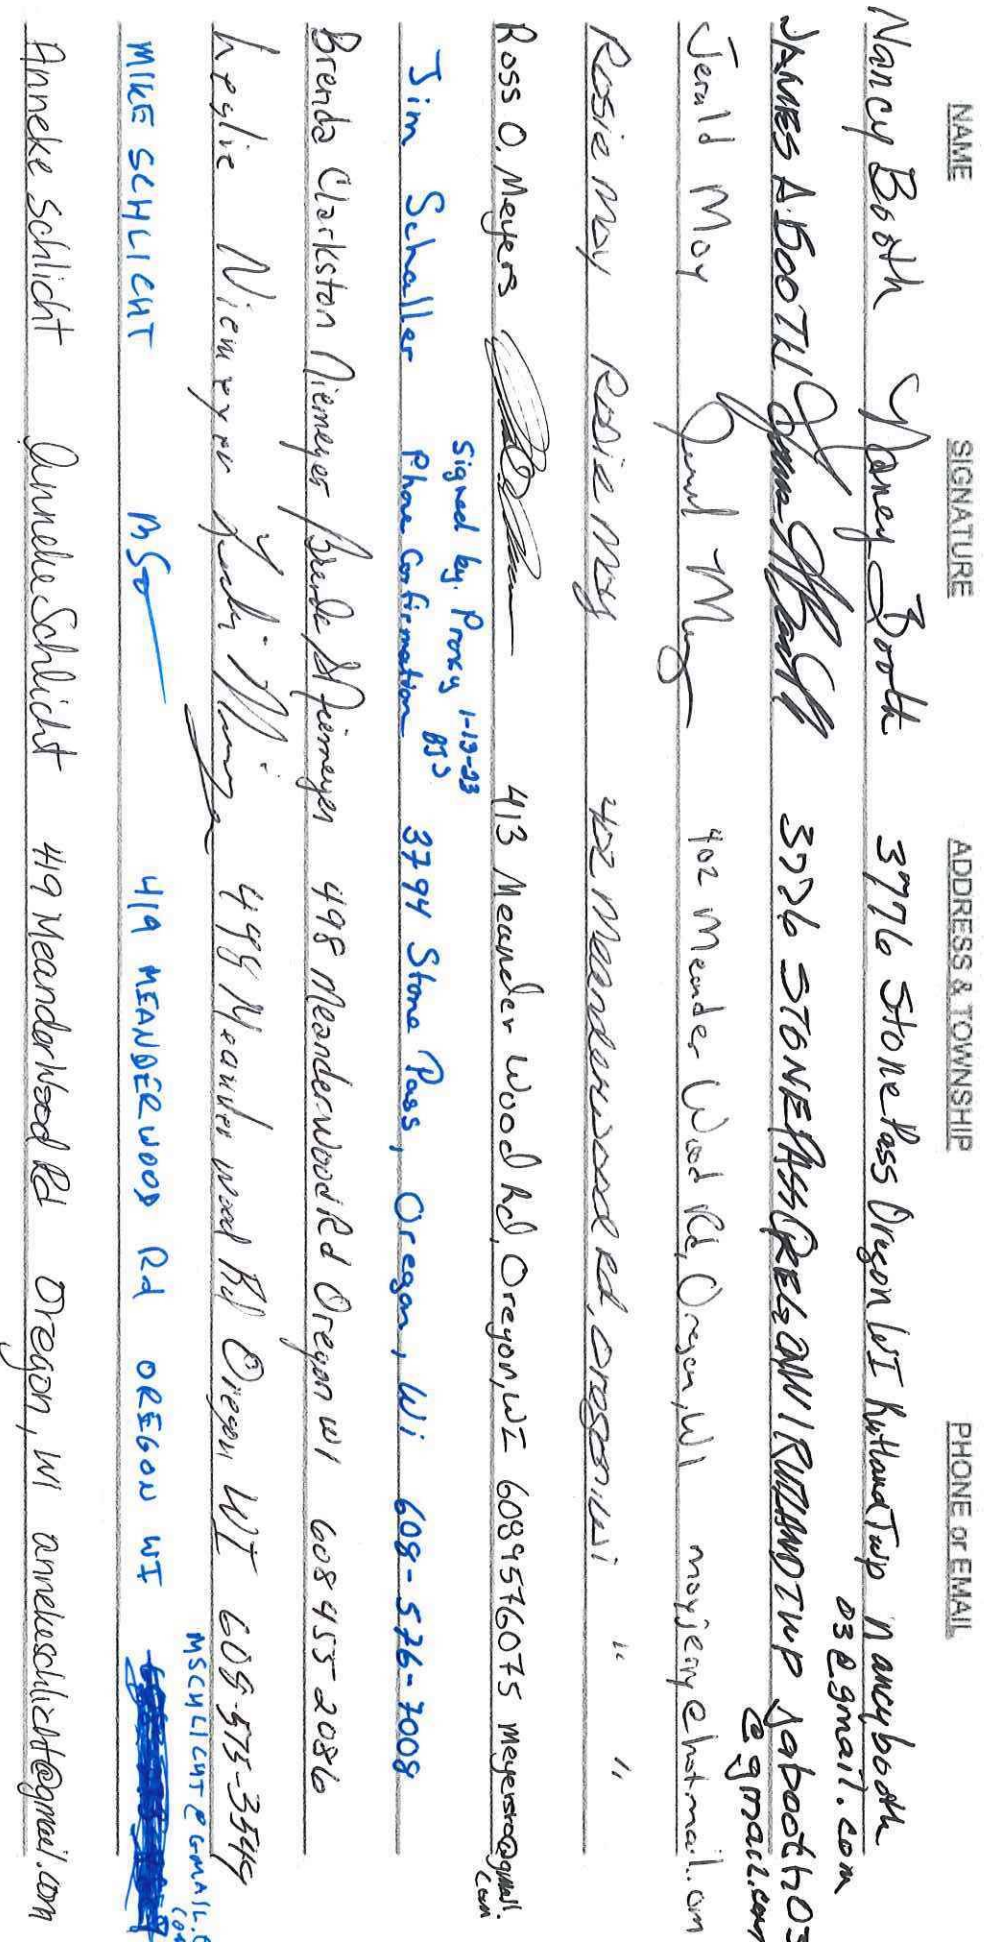 NAME SIGNATURE ADDRESS & TOWNSHIP PHONE or EMAIL
Nancy Booth Nancy Booth 3776 Stone Pass Oregon WI Rutland Twp nancybooth
03@gmail.com
JAMES A. BOOTH 3776 STONE PASS OREGON WI RUTLAND TWP jabooth03
@gmail.com
Jerald Moy 402 Meander Wood Rd, Oregon, WI moyjerry@hotmail.com
Rosie Moy Rosie Moy 402 Meanderwood Rd, Oregon, Wi " "
Ross O. Meyers 413 Meander Wood Rd, Oregon, WI 6089576075 meyersro@gmail.
com
Signed by Proxy 1-19-23
Jim Schaller Phone Confirmation BJS 3794 Stone Pass, Oregon, Wi 608-576-7008
Brenda Clarkston Niemeyer Brenda Niemeyer 498 Meanderwood Rd Oregon WI 608 455 2086
Leslie Niemeyer 498 Meander wood Rd Oregon WI 608-575-3549
MSCHLICHT@GMAIL.COM
MIKE SCHLICHT 419 MEANDERWOOD Rd OREGON WI
Anneke Schlicht Anneke Schlicht 419 Meanderwood Rd Oregon, WI annekeschlicht@gmail.com